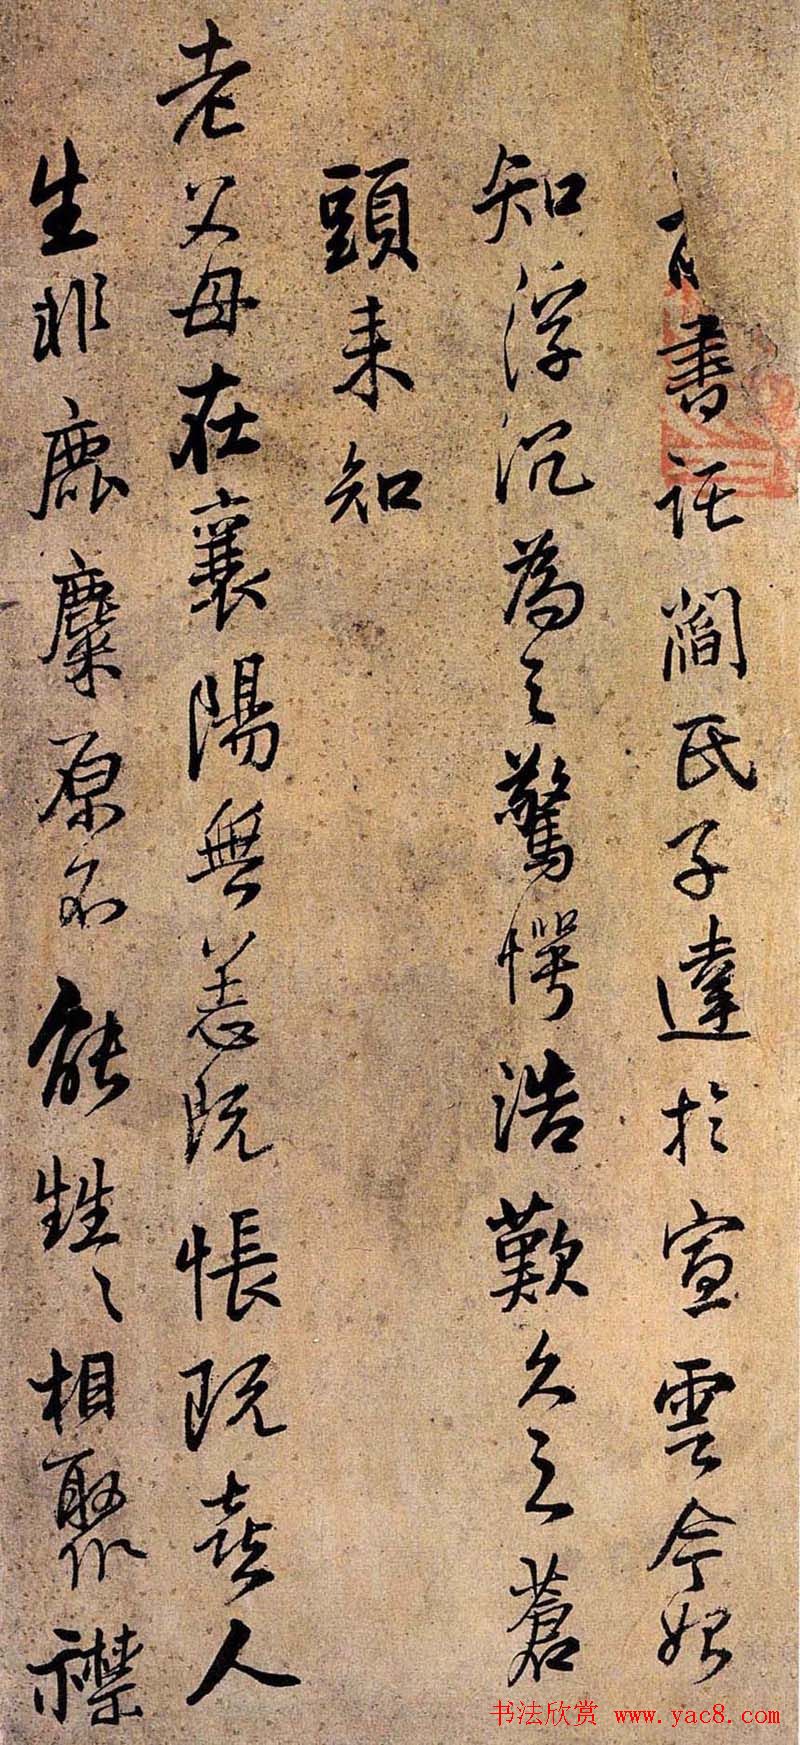 書託閻氏子達於宣雲今始
知浮沉為之驚愕浩歎久之蒼
頭來知
老父母在襄陽無恙既悵既喜人
生非鹿麋原不能甡〻相聚僸
书法欣赏 www.yac8.com